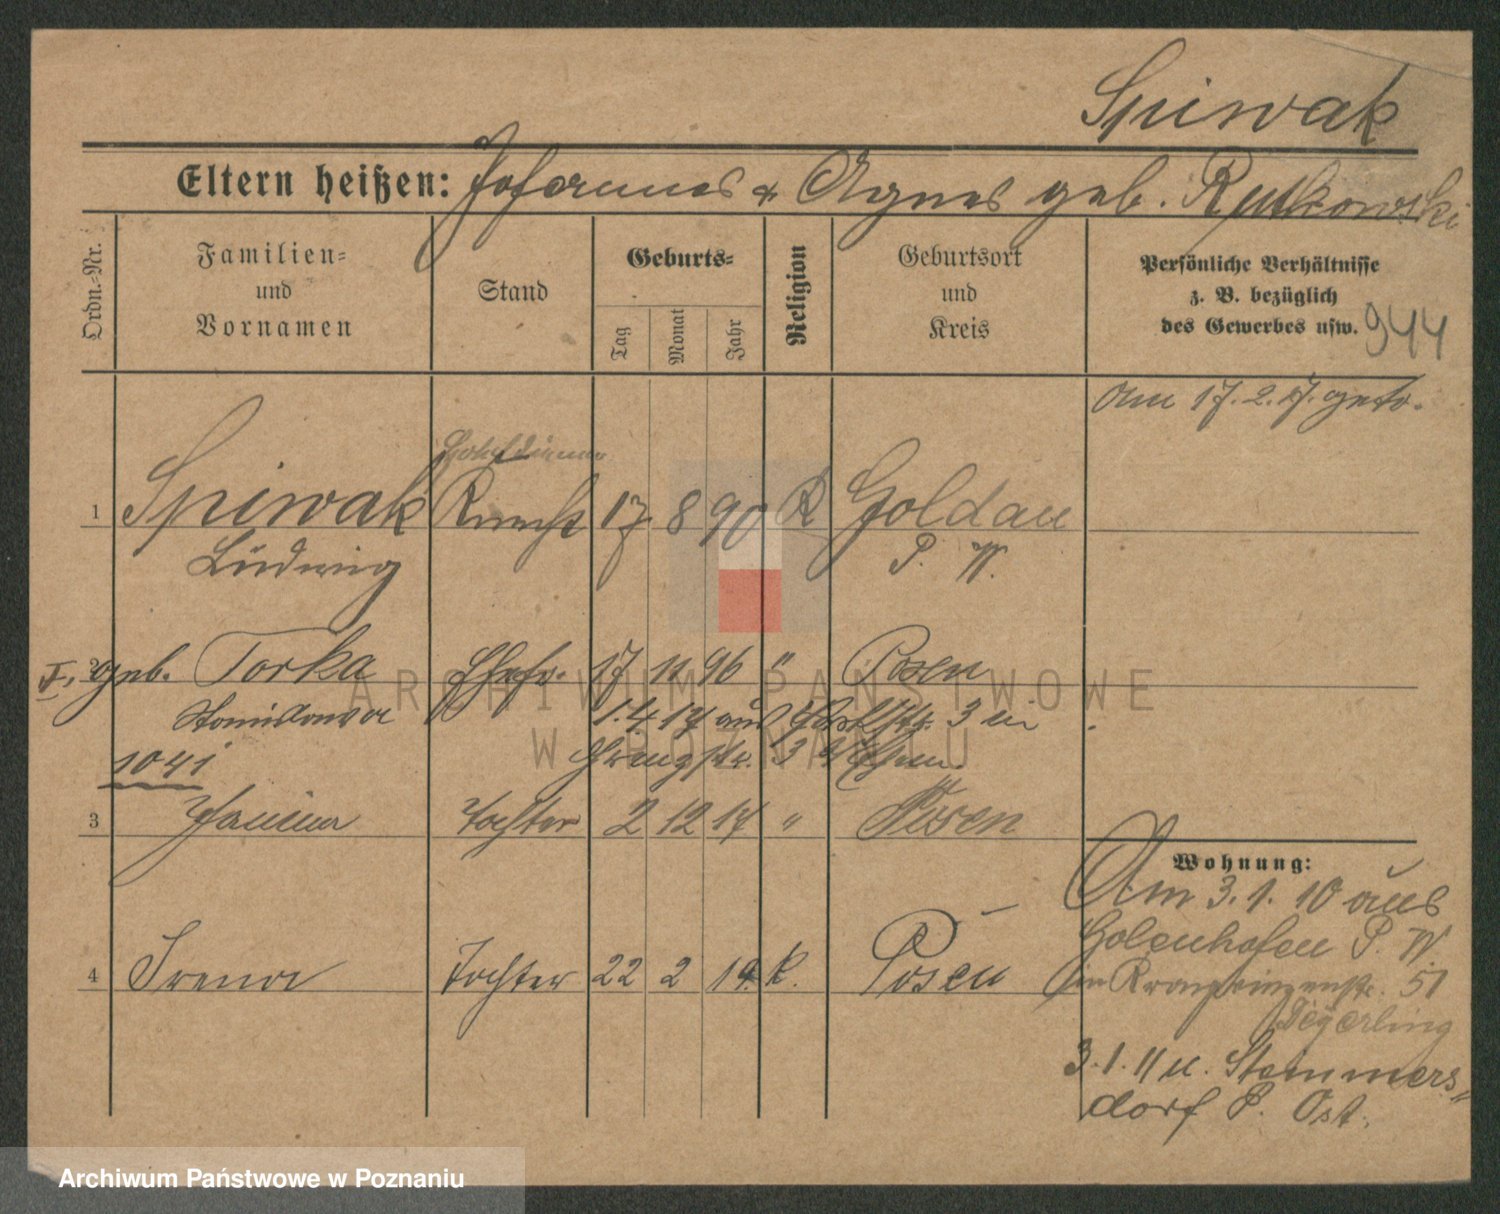 Spiwak
Eltern heißen: Johannes & Agnes geb. Rutkowski
Ordn.-Nr.
Familien-
und
Vornamen
Stand
Geburts-
Tag
Monat
Jahr
Religion
Geburtsort
und
Kreis
Persönliche Verhältnisse
z. B. bezüglich
des Gewerbes usw.
944
Am 17. 2. 17. getr.
1 Spiwak Knecht 17 8 90 K Goldau
Ludwig P. W.
I. 2 geb. Torka Ehefr. 17 11 96 " Posen
Stanislawa 1. 4 17 aus 3 in
1041 3
3 Janina Tochter 2 12 17 " Posen
Wohnung:
Am 3. 1. 10 aus
Golenhofen P. W.
in Kronprinzenstr. 51
Degerling
4 Irena Tochter 22 2 19. K. Posen
3. 1. 11 n. Stemmers-
dorf P. Ost.
ARCHIWUM PAŃSTWOWE
W POZNANIU
Archiwum Państwowe w Poznaniu